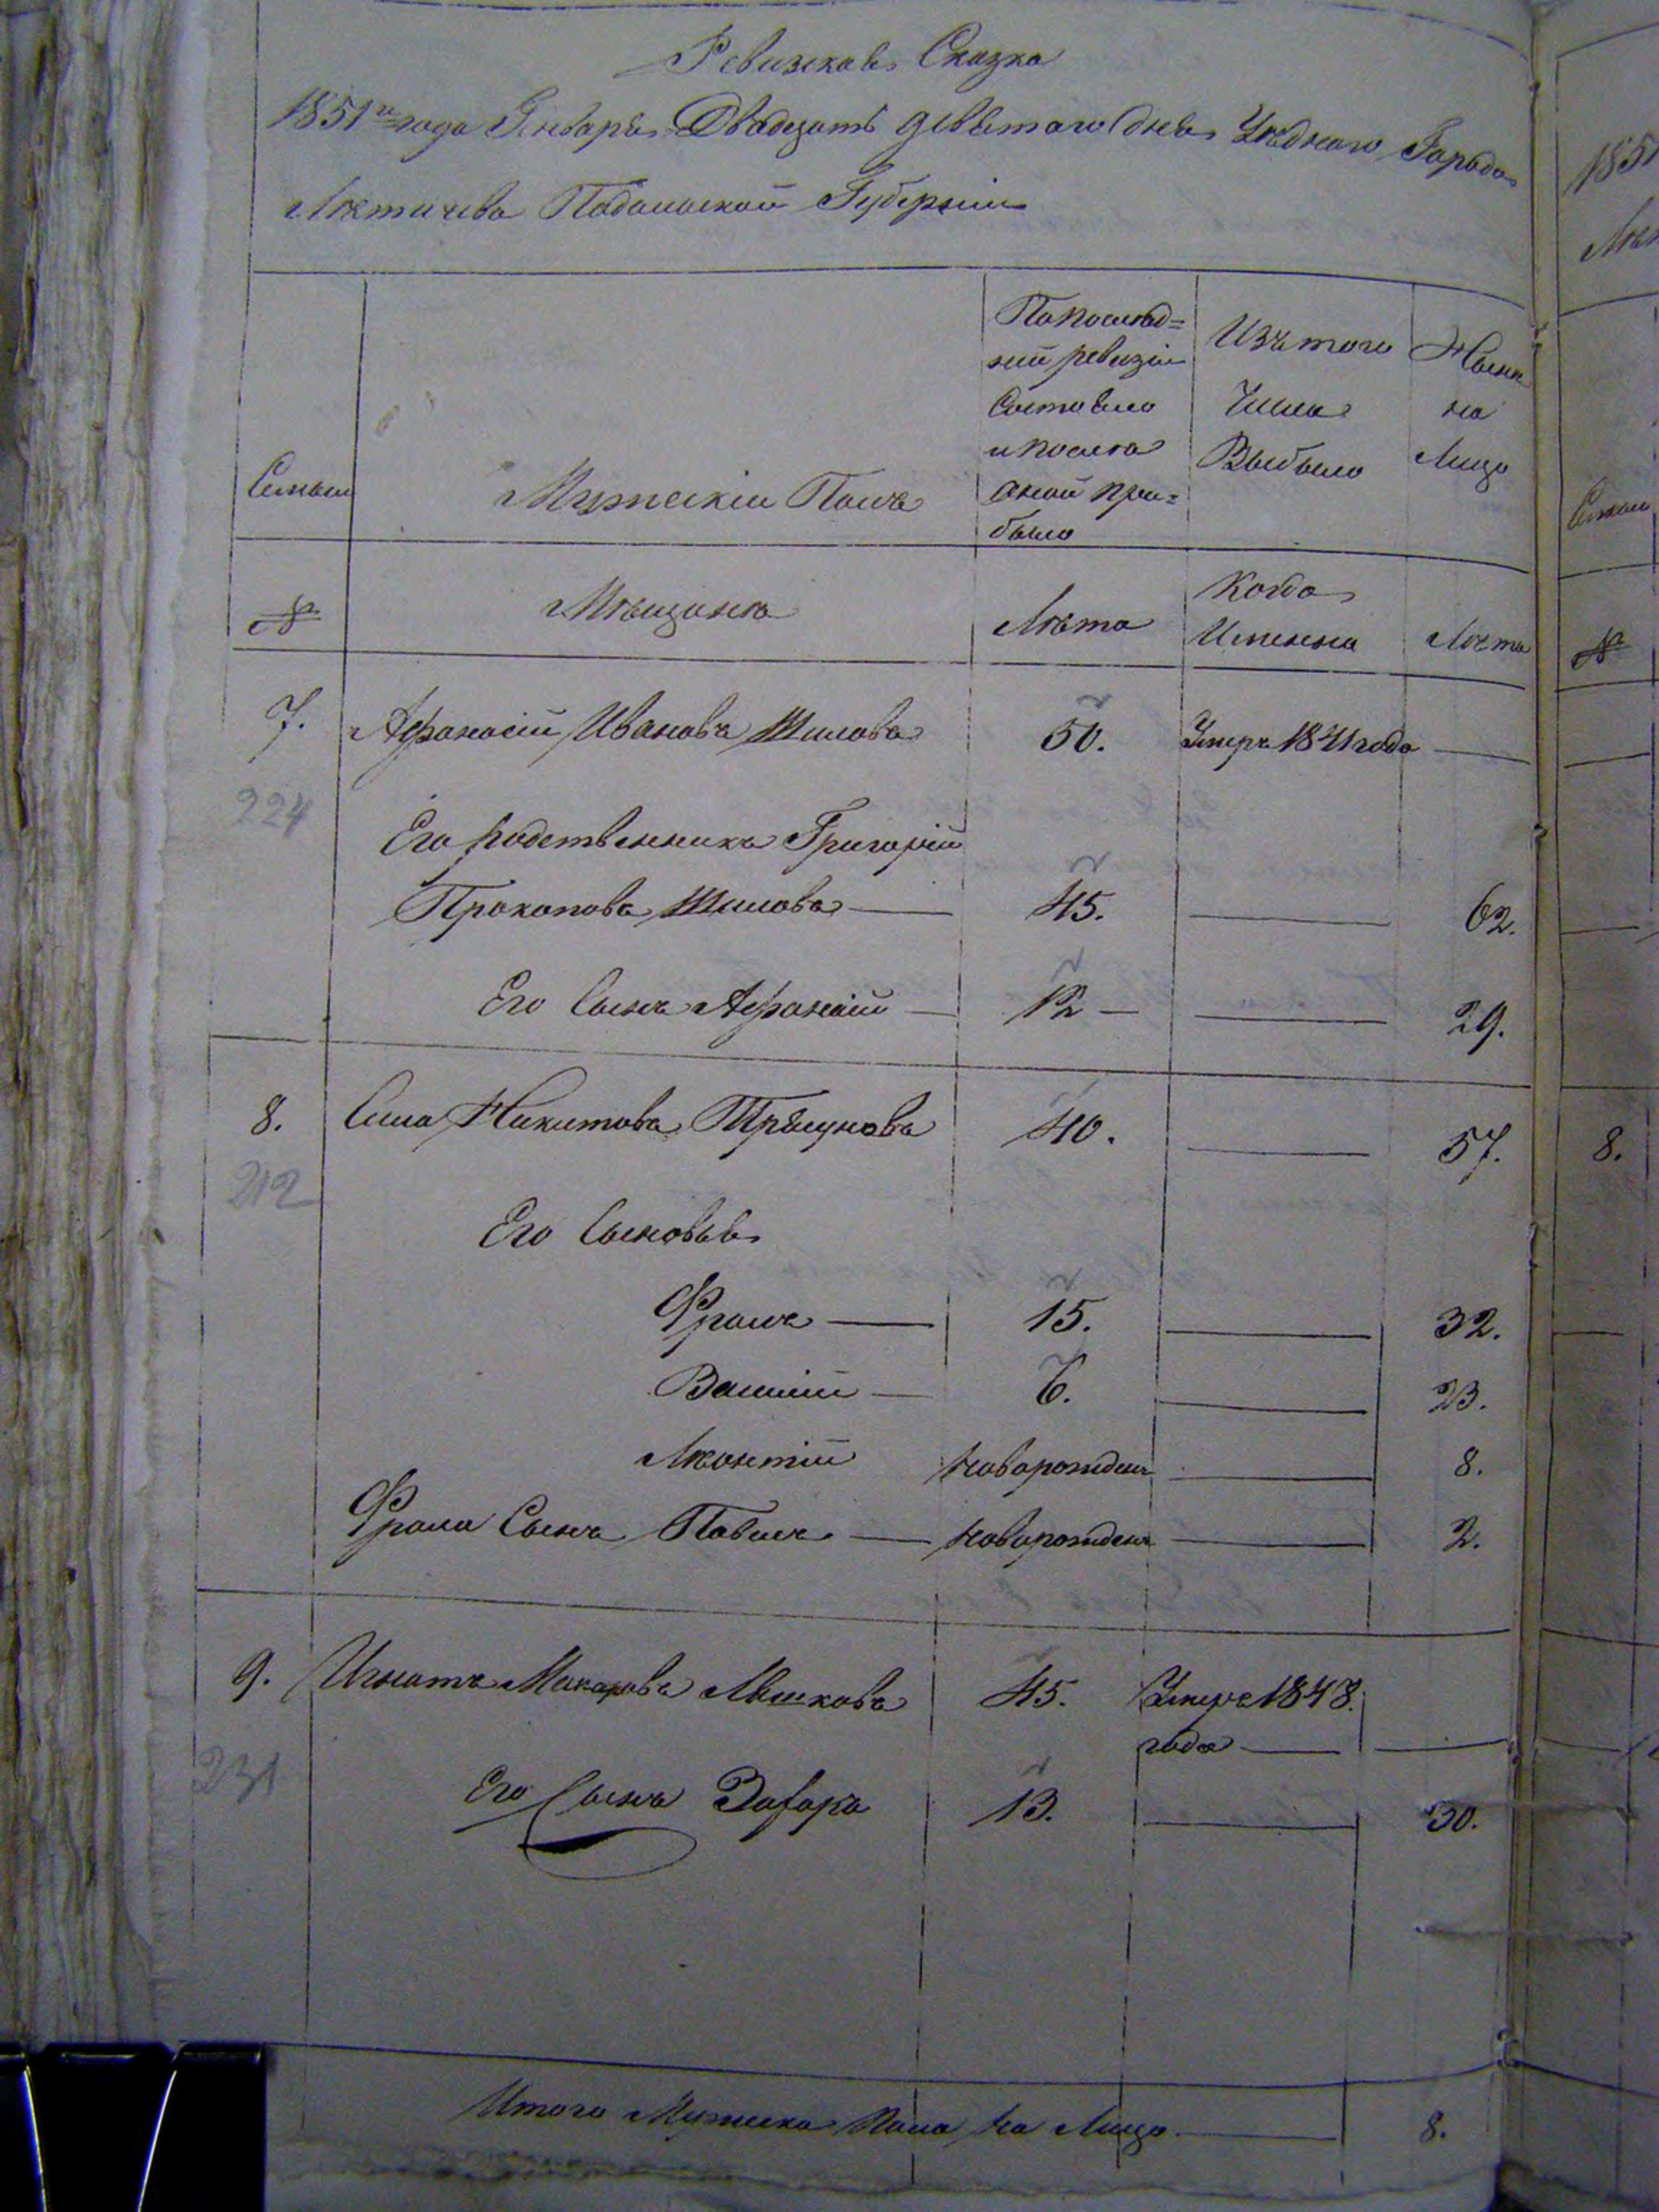 Ревизская Сказка
1851го года Генваря Двадцать девятого дня Уѣднаго Города
Лѣтичева Подольской Губерніи
По послѣд=
ней ревизіи
состояло
и посла
оной при=
было
Изъ того
Числа
Выбыло
Ныне
на
Лицо
Семьи
Мужескій Полъ
№
Мѣщанѣ
Лѣта
Когда
Именно
Лѣта
7. Афанасій Ивановъ Шиловъ 50. Умеръ 1841 года
224
Его родственникъ Григорій
Прокоповъ Шиловъ 45. 62.
Его Сынъ Афанасій 12 29.
8. Сила Никитовъ 40. 57.
212
Его Сыновья
Фролъ 15. 32.
Василій 6. 23.
Лѣонтій новорожденъ 8.
Фрола Сынъ Павелъ новорожденъ 2.
9. Игнатъ Макаровъ Мышковъ 45. Умеръ 1848.
года
231
Его Сынъ Захаръ 13. 30.
Итого Мужеска пола на Лицо 8.
1851
Лѣт
Семьи
№
8.